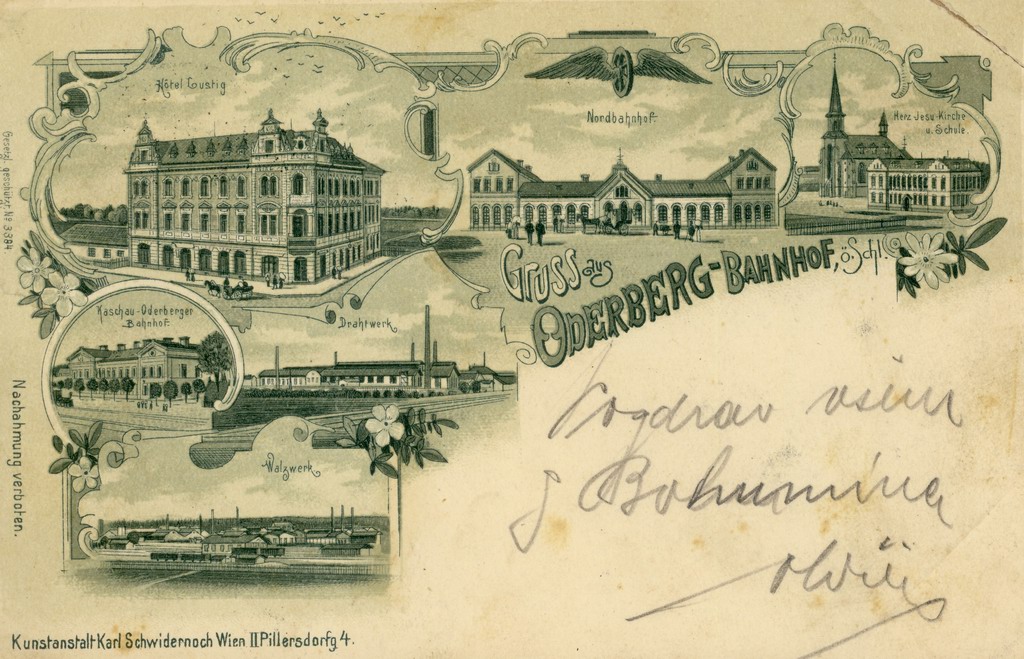 Hôtel Lustig
Nordbahnhof.
Herz Jesu-Kirche
u. Schule.
Gesetzl. geschützt. No 3384
Gruss aus
Oderberg-Bahnhof, ö. Schl.
Kaschau-Oderberger
Bahnhof.
Drahtwerk
Walzwerk
Nachahmung verboten.
Pozdrav všem
z Bohumína
Kunstanstalt Karl Schwidernoch Wien II Pillersdorfg 4.